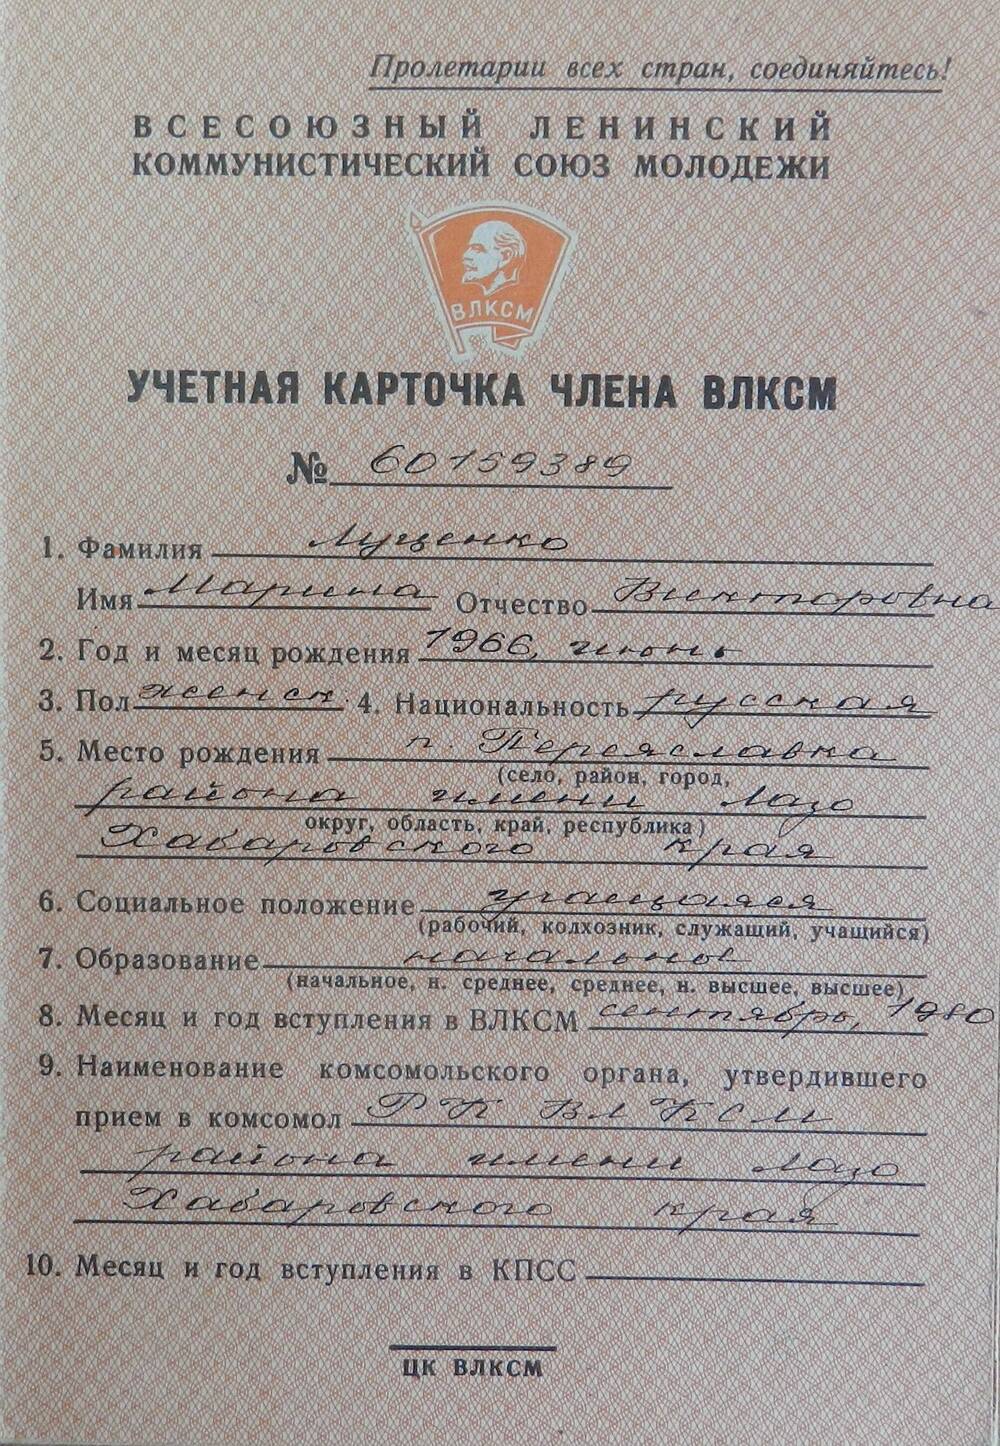 Пролетарии всех стран, соединяйтесь!
ВСЕСОЮЗНЫЙ ЛЕНИНСКИЙ
КОММУНИСТИЧЕСКИЙ СОЮЗ МОЛОДЕЖИ
ВЛКСМ
УЧЕТНАЯ КАРТОЧКА ЧЛЕНА ВЛКСМ
№ 60159389
1. Фамилия Лущенко
Имя Марина Отчество Викторовна
2. Год и месяц рождения 1966, июнь
3. Пол женск. 4. Национальность русская
5. Место рождения п. Переяславка
(село, район, город,
района имени Лазо
округ, область, край, республика)
Хабаровского края
6. Социальное положение учащаяся
(рабочий, колхозник, служащий, учащийся)
7. Образование начальное
(начальное, н. среднее, среднее, н. высшее, высшее)
8. Месяц и год вступления в ВЛКСМ сентябрь, 1980
9. Наименование комсомольского органа, утвердившего
прием в комсомол РК ВЛКСМ
района имени Лазо
Хабаровского края
10. Месяц и год вступления в КПСС
ЦК ВЛКСМ